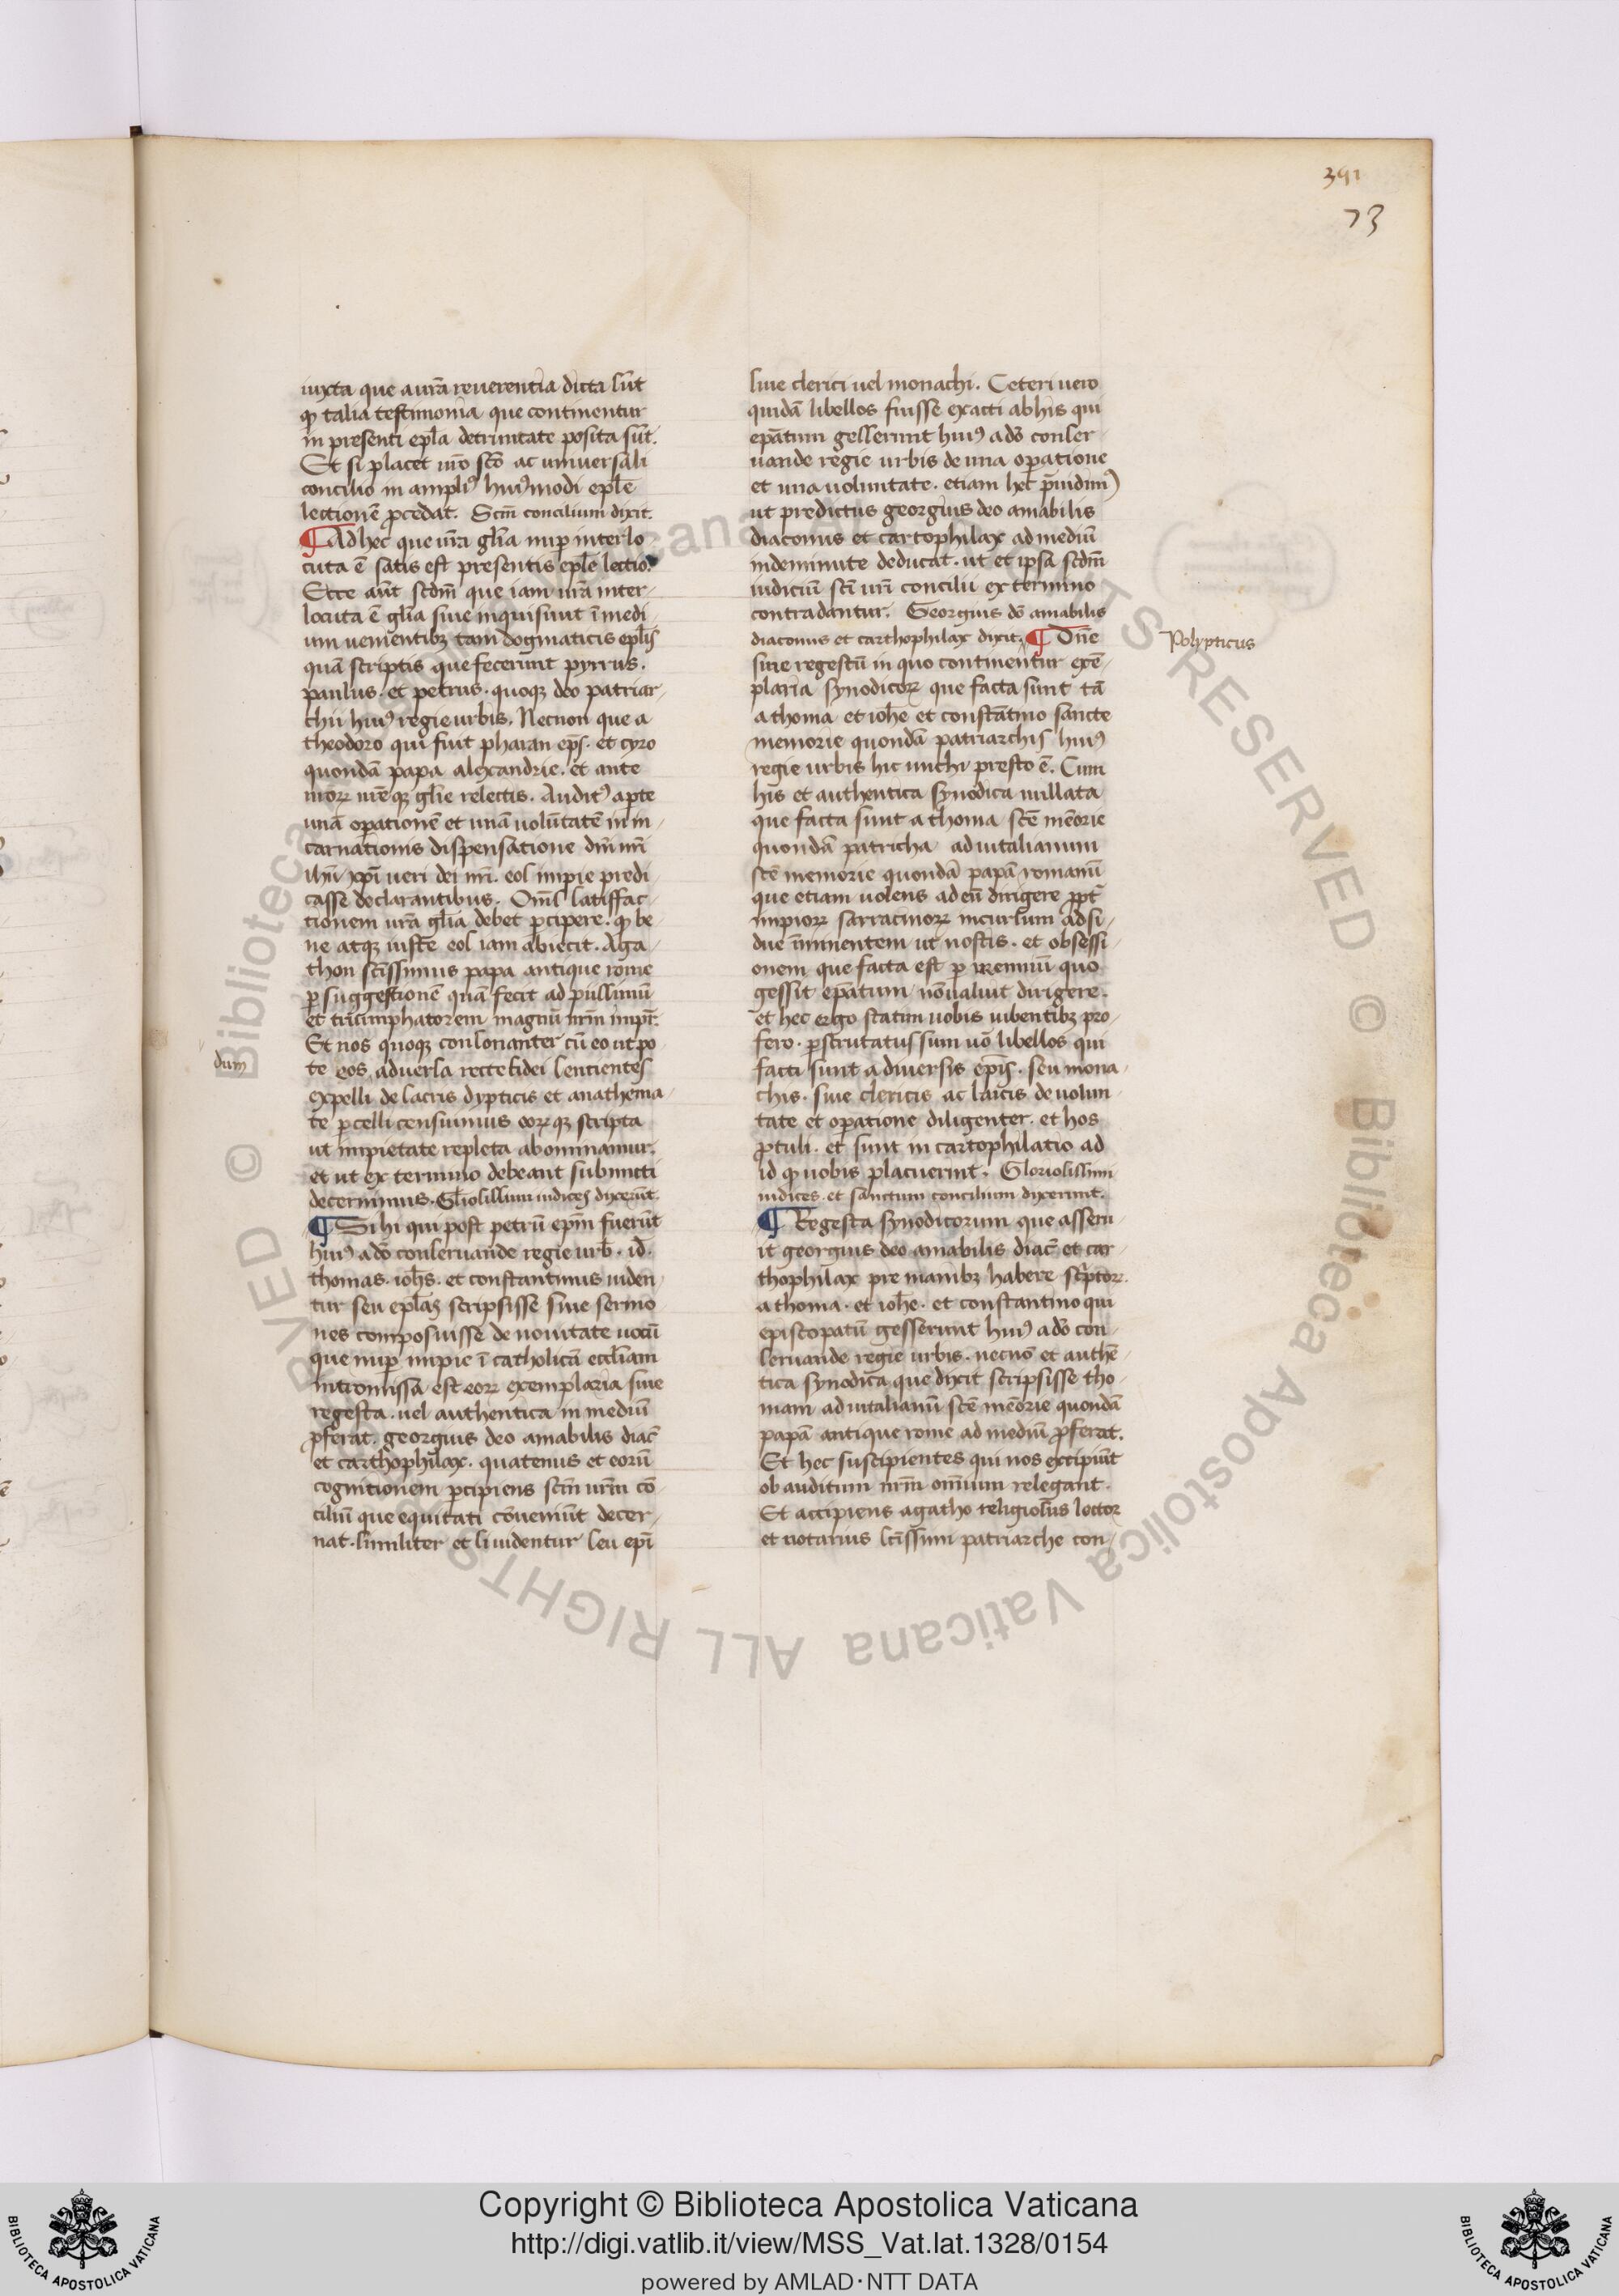 391
73
iuxta que a vr̄a reuerentia dicta su̅t
ꝙ talia testimonia que continentur
in presenti ep̄la de trinitate posita su̅t.
Et si placet vr̄o sc̄o ac vniuersali
concilio in ampliꝰ huiꝰmodi ep̄le
lectionē ꝓcedat. Scm̄ concilium dixit.
¶ Ad hec que vr̄a gl̄ia nuꝑ interlo
cuta ē satis est presentis ep̄le lectio.
Ecce aut̄ scdm̄ que iam vr̄a inter-
locuta ē gl̄ia siue inquisiuit ī medi
um venientibꝫ tam dogmaticis ep̄lis
quā scriptis que fecerunt pyrrus.
paulus. et petrus. quoqꝫ deo patriar-
chii huiꝰ regie urbis. Necnon que a
theodoro qui fuit pharan ep̄s. et cyro
quondā papa alexandrie. et ante
morꝝ mēqꝫ gl̄ie relectis. Auditꝰ aꝑte
unā oꝑationē et unā voluntatē in in-
carnationis dispensatione dn̄i nr̄i
ihū xp̄i veri dei nr̄i. eos impie predi
casse declarantibus. Om̄s satisffac-
tionem vr̄a gl̄ia debet ꝑcipere. ꝙ be-
ne atqꝫ iuste eos iam abiecit. Aga-
thon sc̄issimus papa antique rome
ꝑ suggestionē quā fecit ad piissimū
et triumphatorem magnū nr̄m impr̄.
Et nos quoqꝫ consonanter cū eo utpo
dum
te eos aduersa recte fidei sencientes
expelli de sacris dypticis et anathema-
te ꝑcelli censuimus eorꝝqꝫ scripta
ut impietate repleta abominamur.
et ut ex termino debeant subuncti
decernimus. Gl̄iosissimi iudices dixerūt.
¶ Si hi qui post petrū ep̄m fuerūt
huiꝰ a dō conseruande regie urb̄. id̄.
thomas. ioh̄s. et constantinus viden-
tur seu ep̄las scripsisse siue sermo
nes composuisse de nouitate vocū
que nuꝑ impie ī catholicā eccl̄iam
intromissa est eorꝝ exemplaria siue
regesta. vel authentica in mediū
ꝓferat. georgius deo amabilis diac̄
et carthophilax. quatenus et eorū
cognitionem ꝑcipiens scm̄ vr̄m cō
ciliū que equitati cōueniūt decer-
nat. similiter et si videntur seu ep̄i
siue clerici vel monachi. Ceteri vero
quidā libellos fuisse exacti ab his qui
ep̄atum gesserunt huiꝰ a dō conser-
uande regie urbis de una oꝑatione
et una voluntate. etiam hec p̄uidimꝰ
ut predictus georgius deo amabilis
diaconus et cartophilax ad mediū
indeminute deducat. ut et ipsa scdm̄
iudiciū sc̄i vr̄i concilii ex termino
contradantur. Georgius dō amabilis
diaconus et carthophilax dixit. ¶ Om̄e
Polypticus
siue regestū in quo continentur exē-
plaria synodicorꝝ que facta sunt tā
a thoma et ioh̄e et constātino sancte
memorie quondā patriarchis huiꝰ
regie urbis hic michi presto ē. Cum
his et authentica synodica nullata
que facta sunt a thoma sc̄e mēorie
quondā patricha ad vitalianum
sc̄e memorie quondā papā romanū
que etiam volens ad eū dirigere ꝓpt̄
impiorꝝ sarracinorꝝ incursum adsi-
due īminentem ut nostis. et obsessi-
onem que facta est ꝑ irenniū quo
gessit ep̄atum nō valuit dirigere.
et hec ergo statim vobis iubentibꝫ pro-
fero. ꝑscrutatus sum vō libellos qui
facti sunt a diuersis ep̄is. seu mona-
chis. siue clericis ac laicis de volun-
tate et oꝑatione diligenter. et hos
ꝓtuli. et sunt in cartophilatio ad
id ꝙ vobis placuerint. Gloriosissimi
iudices. et sanctum concilium dixerunt.
¶ Regesta synodicorum que asseru-
it georgius deo amabilis diac̄ et car-
thophilax pre manibꝫ habere scͥptorꝝ.
a thoma. et ioh̄e. et constantino qui
episcopatū gesserunt huiꝰ a dō con-
seruande regie urbis. necnō et authē-
tica synodica que dixit scripsisse tho-
mam ad vitalianū sc̄e mēorie quondā
papā antique rome ad mediū ꝓferat.
Et hec suscipientes qui nos excipiūt
ob auditum nr̄m om̄ium relegant.
Et accipiens agatho religios̄us lector
et notarius sc̄issimi patriarche con-
Copyright © Biblioteca Apostolica Vaticana
http://digi.vatlib.it/view/MSS_Vat.lat.1328/0154
powered by AMLAD·NTT DATA